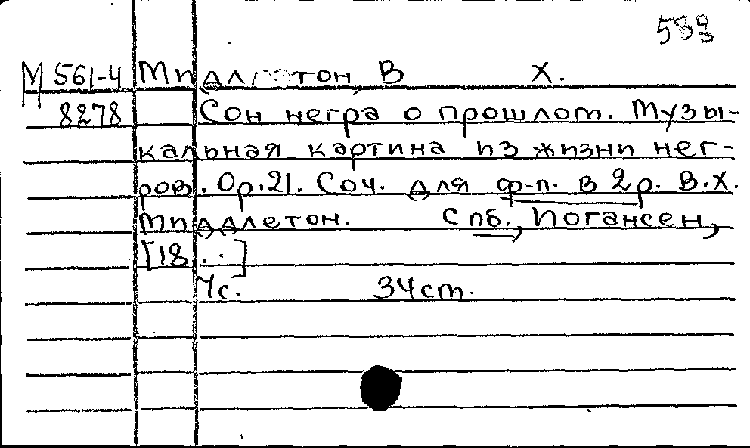 583
М 561-4 Миддлетон, В Х.
8278 Сон негра о прошлом. Музы-
кальная картина из жизни нег-
ров. Op.21. Соч. для ф-п. в 2 р. В.Х.
Миддлетон. Спб., Иогансен,
[18..]
7с. 34 cm.